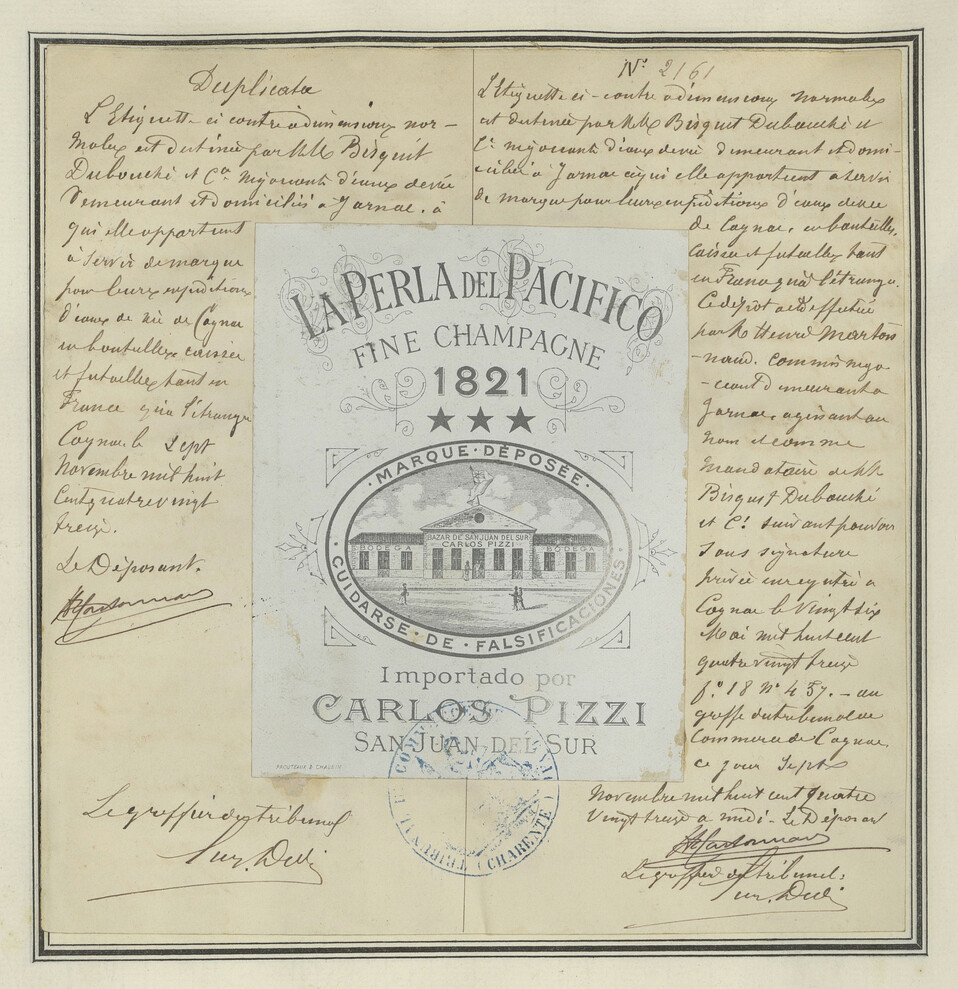 Duplicata
L'Etiquette ci contre à dimensions nor-
males est destinée par MM Bisquit
Dubouché et Cie négociants d'eaux de vie
Demeurant et domiciliés à Jarnac. à
qui elle appartient
à servir de marque
pour leurs expéditions
d'eaux de vie de Cognac
en bouteilles caisses
et futailles tant en
France qu'à l'étranger
Cognac le Sept
Novembre mil huit
Cent quatre vingt
treize.
Le Déposant.
Le greffier du tribunal
No 2161
L'Etiquette ci-contre à dimensions normales
est destinée par MM Bisquit Dubouché et
Cie négociants d'eaux de vie demeurant et domi-
ciliés à Jarnac à qui elle appartient à servir
de marque pour leurs expéditions d'eaux de vie
de Cognac, en bouteilles,
caisses et futailles tant
en France qu'à l'étranger.
Ce dépôt a été effectué
par M Henri Marton
naud. commis négo
-ciant demeurant à
Jarnac, agissant au
nom et comme
mandataire de MM
Bisquit Dubouché
et Cie suivant pouvoir
sous signature
privée enregistré à
Cognac le Vingt six
Mai mil huit cent
quatre vingt treize
fo 18 No 437. - au
greffe du tribunal de
Commerce de Cognac,
ce jour Sept
Novembre mil huit cent quatre
Vingt treize à midi - Le Déposant
Le greffier du tribunal.
LA PERLA DEL PACIFICO
FINE CHAMPAGNE
1821
· MARQUE · DÉPOSÉE ·
BAZAR DE SAN JUAN DEL SUR
CARLOS PIZZI
BODEGA
BODEGA
CUIDARSE · DE · FALSIFICACIONES
Importado por
CARLOS PIZZI
SAN JUAN DEL SUR
TRIBUNAL DE COMMERCE
(CHARENTE)